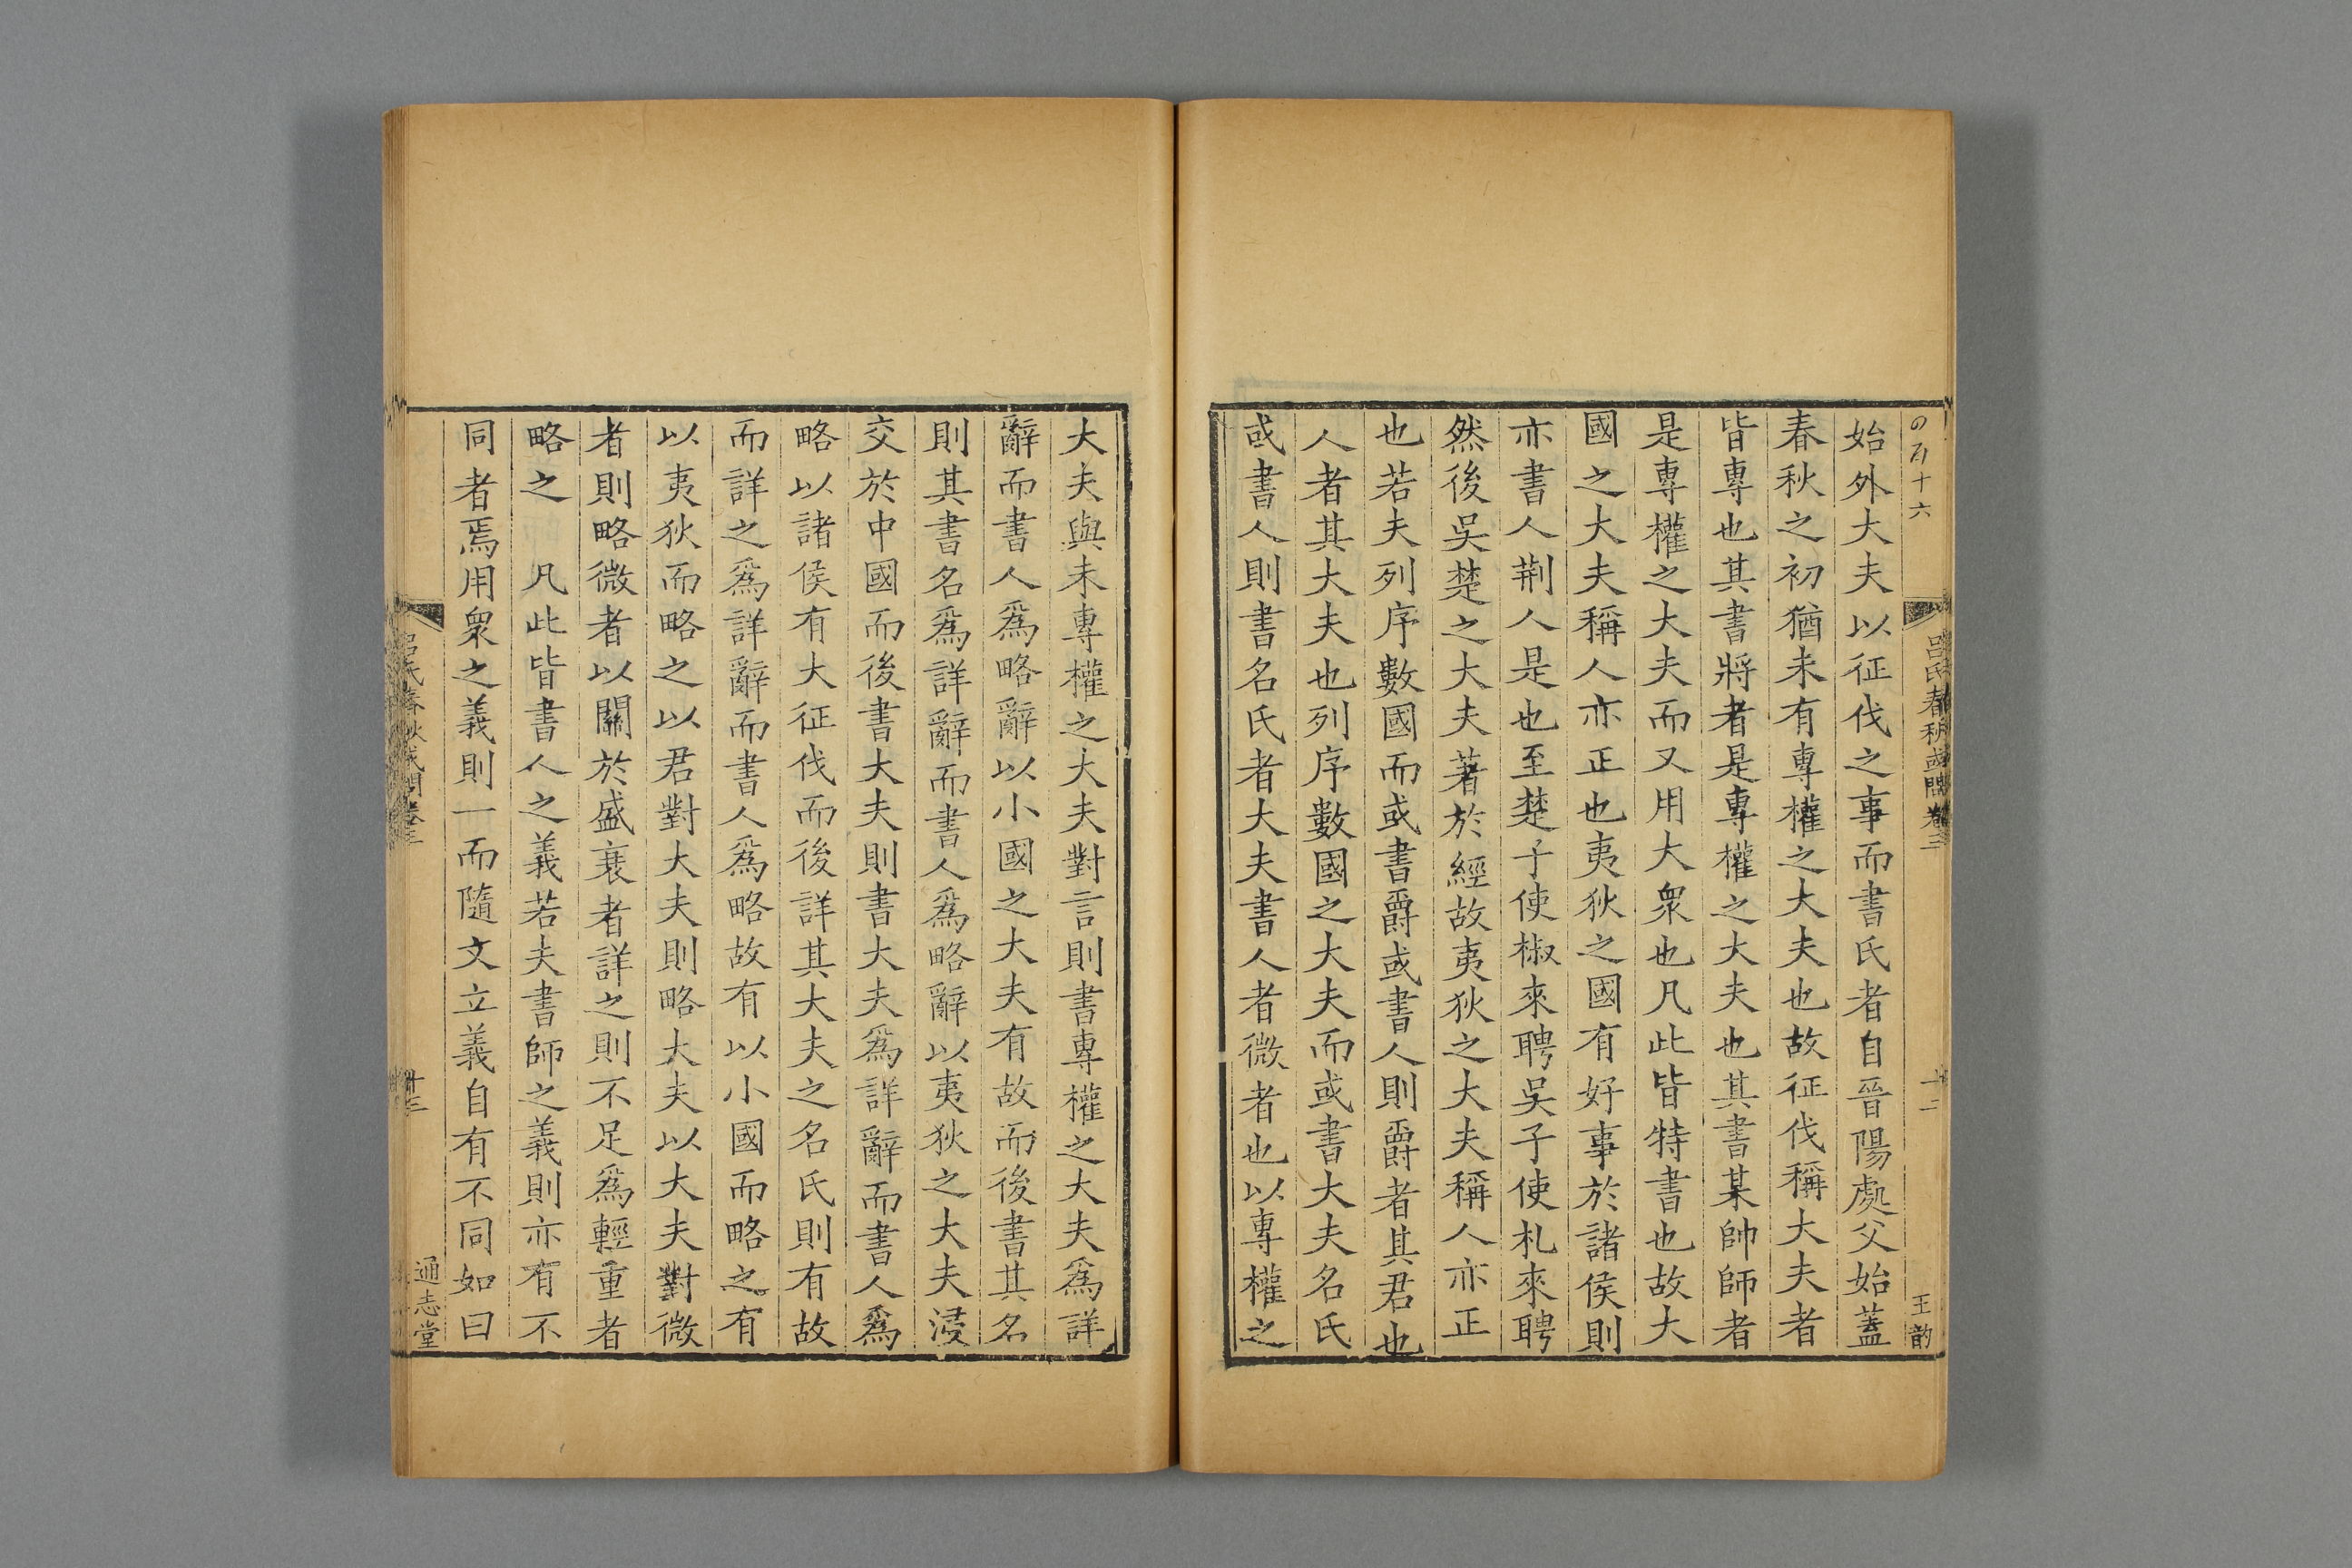 始外大夫以征伐之事而書氏者自晉陽處父始蓋
春秋之初猶未有專權之大夫也故征伐稱大夫者
皆專也其書將者是專權之大夫也其書某帥師者
是專權之大夫而又用大衆也凡此皆特書也故大
國之大夫稱人亦正也夷狄之國有好事於諸侯則
亦書人荆人是也至楚子使椒來聘吳子使札來聘
然後吳楚之大夫著於經故夷狄之大夫稱人亦正
也若夫列序數國而或書爵或書人則爵者其君也
人者其大夫也列序數國之大夫而或書大夫名氏
或書人則書名氏者大夫書人者微者也以專權之
呂氏春秋或問卷三
王韵
大夫與未專權之大夫對言則書專權之大夫爲詳
辭而書人爲略辭以小國之大夫有故而後書其名
則其書名爲詳辭而書人爲略辭以夷狄之大夫浸
交於中國而後書大夫則書大夫爲詳辭而書人爲
略以諸侯有大征伐而後詳其大夫之名氏則有故
而詳之爲詳辭而書人爲略故有以小國而略之有
以夷狄而略之以君對大夫則略大夫以大夫對微
者則略微者以關於盛衰者詳之則不足爲輕重者
略之 凡此皆書人之義若夫書師之義則亦有不
同者焉用衆之義則一而隨文立義自有不同如曰
呂氏春秋或問卷三
十三
通志堂